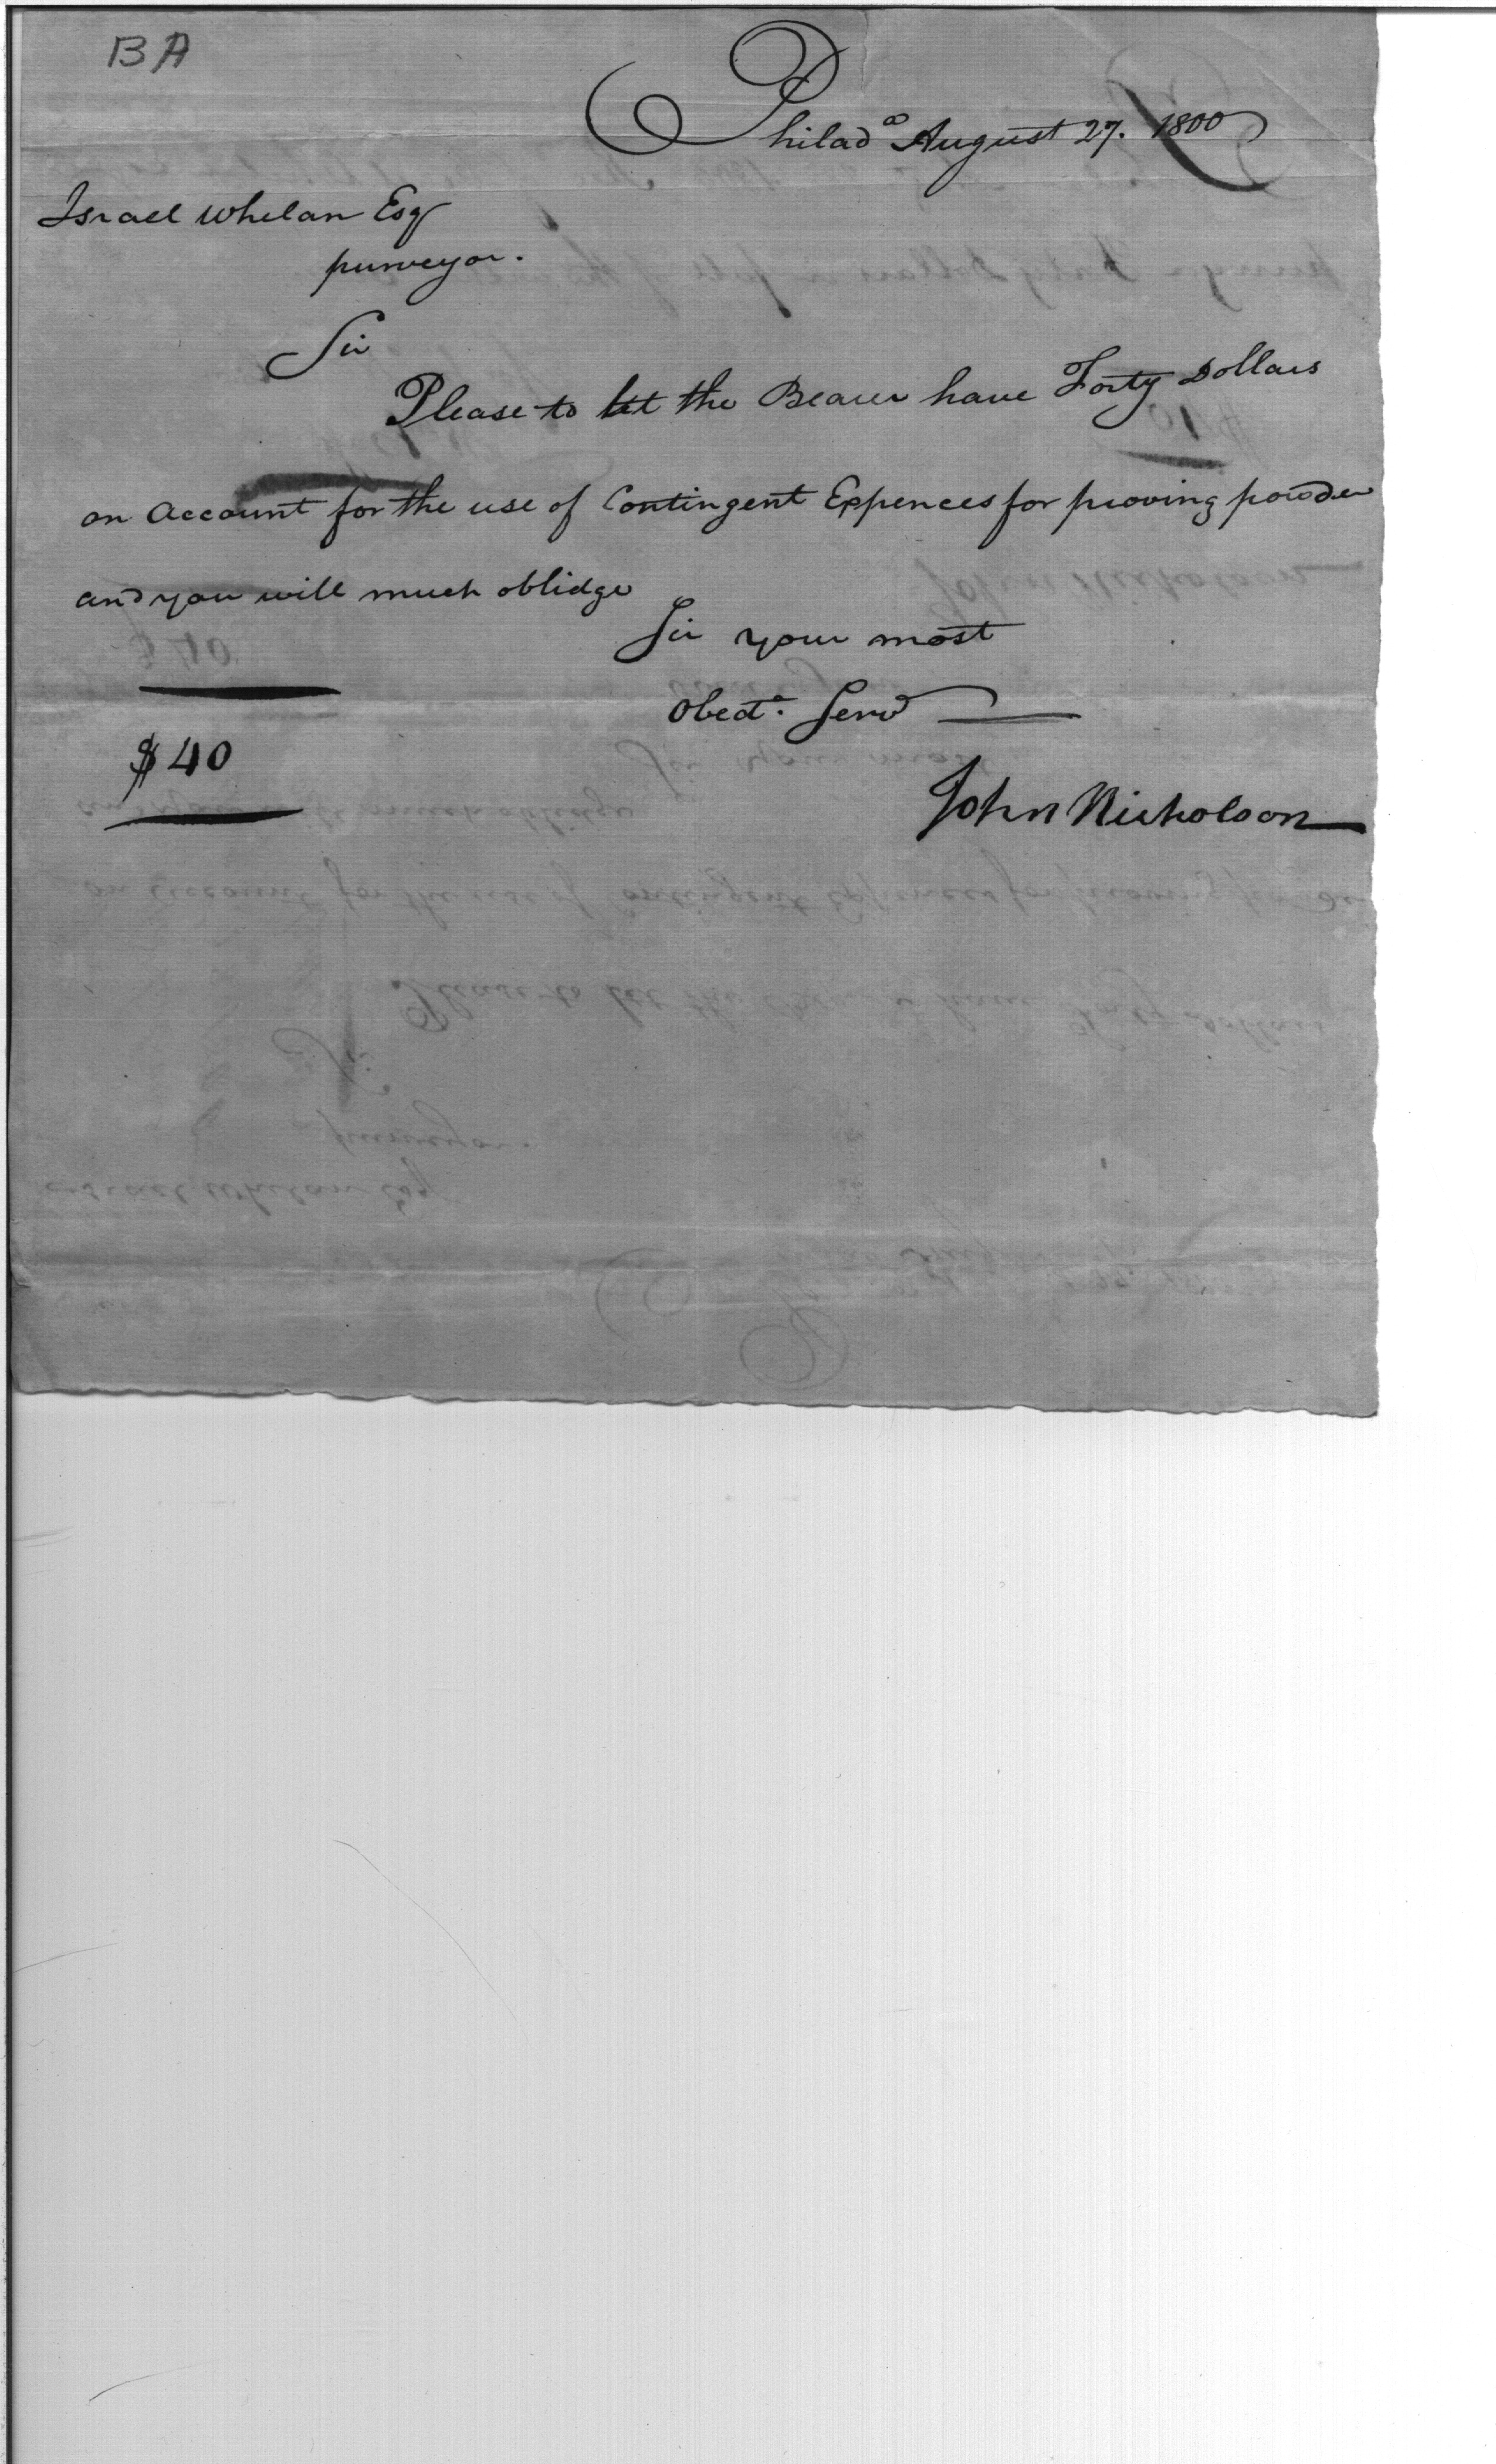 BA
Philada August 27. 1800
Israel Whelan Esqr
purveyor.
Sir
Please to let the Bearer have Forty Dollars
on account for the use of Contingent Expences for proving powder
and you will much oblidge
Sir your most
Obedt. Servt
$40
John Nicholson